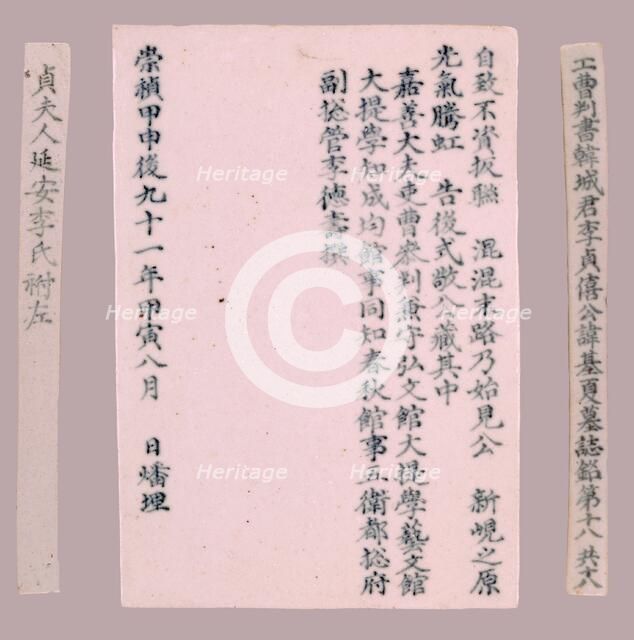 工曹判書韓城君李貞僖公諱基夏墓誌銘第十八 共十八
自致不資扳聯 混混末路乃始見公 新峴之原
光氣騰虹 告後式敬公藏其中
嘉善大夫吏曹參判兼守弘文館大提學藝文館
大提學知成均館事同知春秋館事五衛都摠府
副摠管李德壽撰
崇禎甲申後九十一年甲寅八月 日燔埋
貞夫人延安李氏祔左
Heritage Heritage
Heritage Heritage
Heritage Heritage